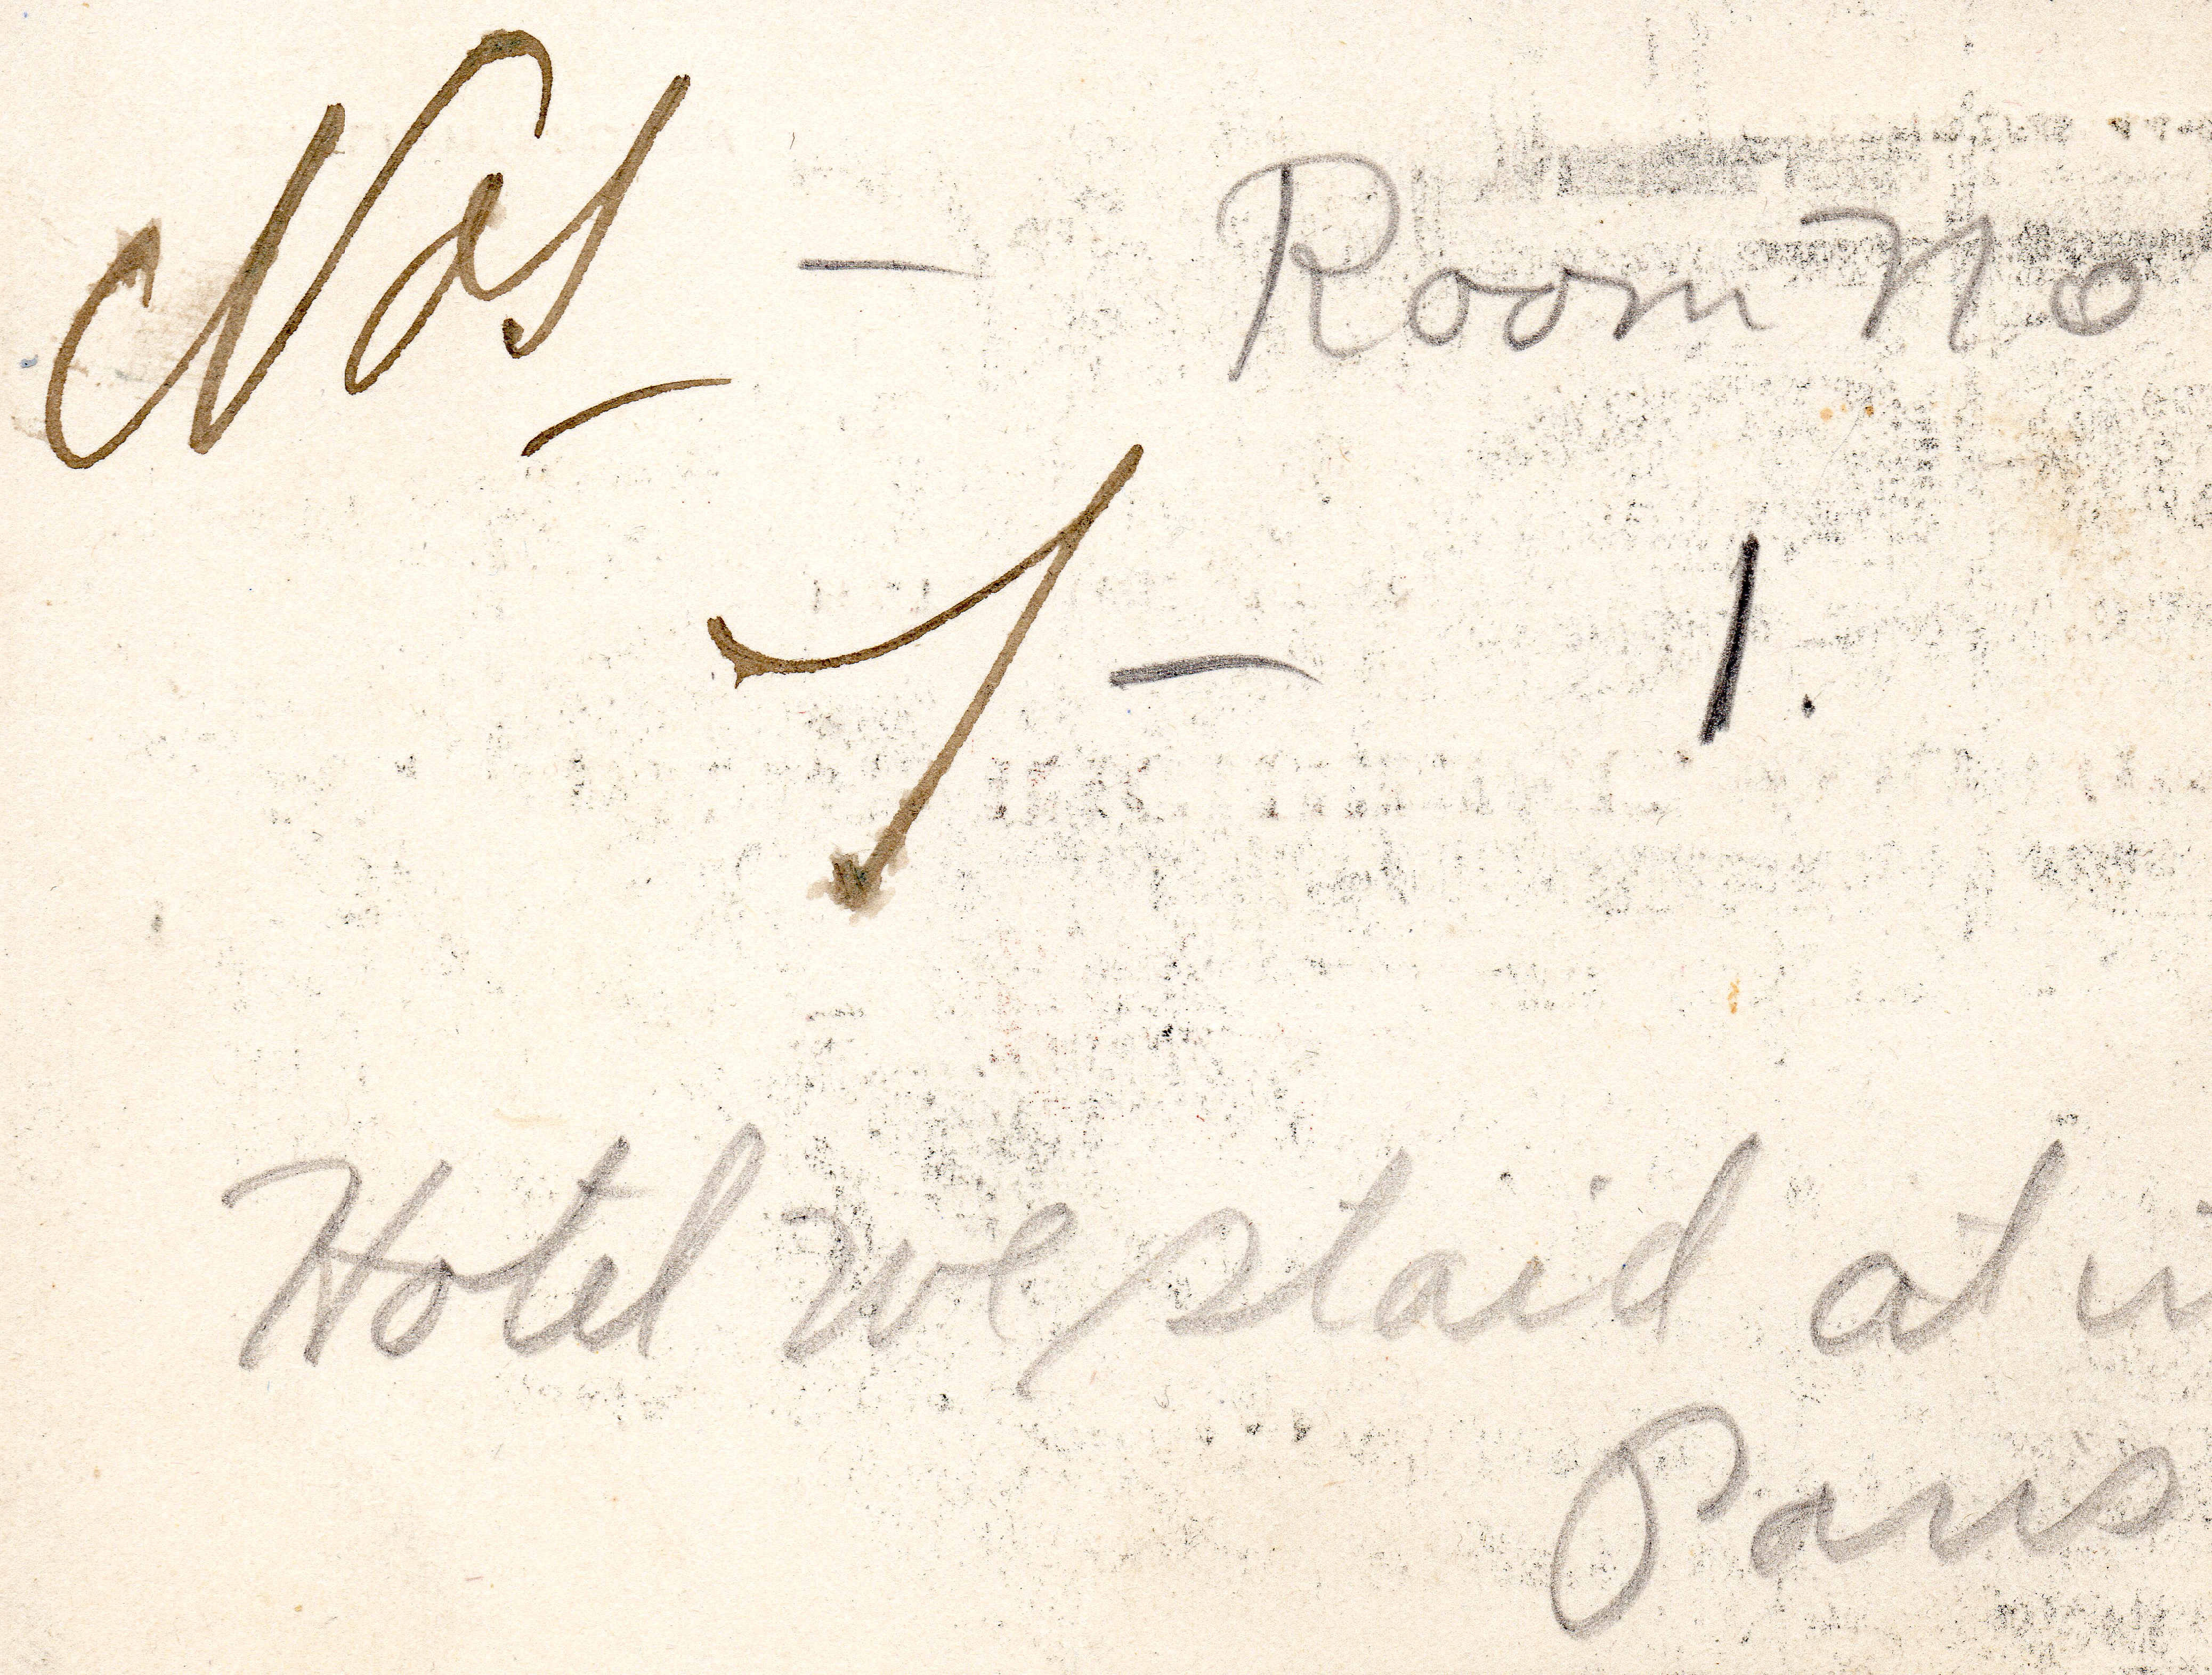 Nos — Room No
1 — 1.
Hotel we staid at in
Paris